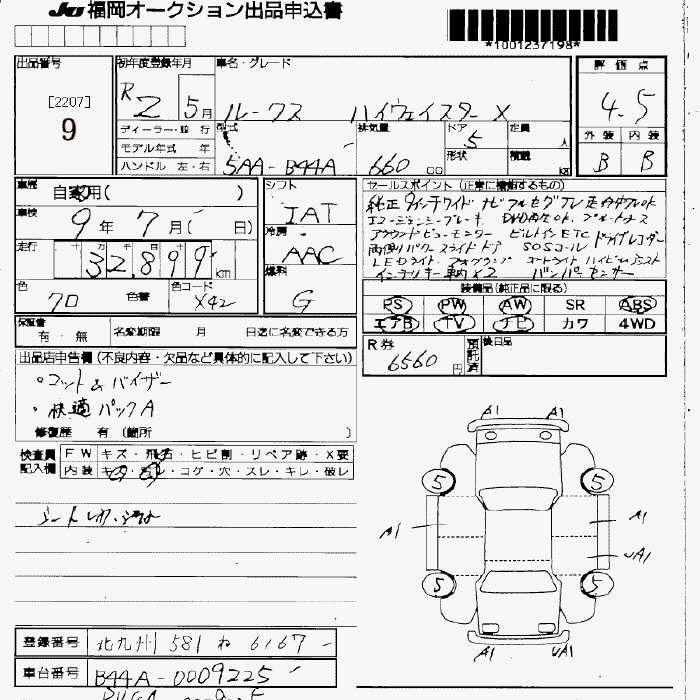 JU 福岡オークション出品申込書
*1001237198*
出品番号
[2207]
9
初年度登録年月
R2 5月
車名・グレード
ルークス ハイウェイスター X
評価点
4.5
外装 内装
B B
ディーラー・並行
モデル年式 年
ハンドル 左・右
型式
5AA-B44A
排気量
660 cc
ドア
5
定員 人
形状 積載 kg
車歴
自家用( )
車検
9年7月( 日)
走行
32,899 km
色
クロ
色替
色コード
X42
シフト
IAT
冷房
AAC
燃料
G
セールスポイント(正常に機能するもの)
純正9インチワイドナビ フルセグTV
エマージェンシーブレーキ DVD再生 ブルートゥース
アラウンドビューモニター ビルトインETC ドライブレコーダー
両側パワースライドドア SOSコール
LEDライト フォグランプ オートライト ハイビームアシスト
インテリキー 車内×2 バンパーセンサー
装備品(純正品に限る)
PS PW AW SR ABS
エアB TV ナビ カワ 4WD
保証書 有・無
名変期限 月 日迄に名変できる方
R券
6560円
預託済
後日品
出品店申告欄(不良内容・欠品など具体的に記入して下さい)
・マット&バイザー
・快適パックA
修復歴 有(箇所 )
検査員記入欄
FW キズ・飛石・ヒビ割・リペア跡・X要
内装 キズ・汚レ・コゲ・穴・スレ・キレ・破レ
A1 A1
5 5
A1 A1
UA1
5 5
A1 UA1
登録番号 北九州 581 ね 6167
車台番号 B44A-0009225